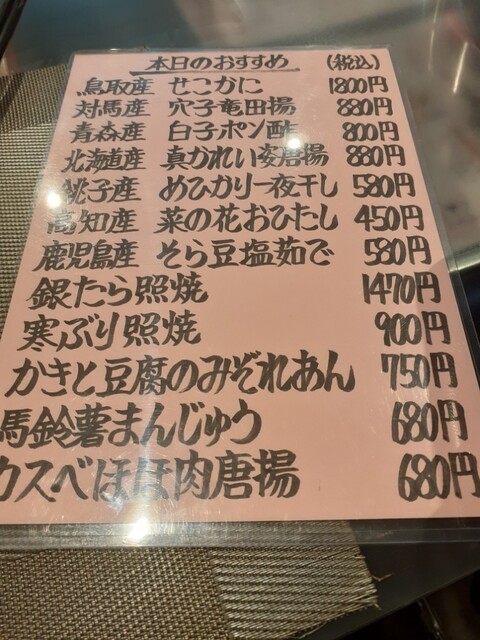 本日のおすすめ (税込)
鳥取産 せこがに 1800円
対馬産 穴子竜田揚 880円
青森産 白子ポン酢 800円
北海道産 真がれい姿唐揚 880円
銚子産 めひかり一夜干し 580円
高知産 菜の花おひたし 450円
鹿児島産 そら豆塩茹で 580円
銀たら照焼 1470円
寒ぶり照焼 900円
かきと豆腐のみぞれあん 750円
馬鈴薯まんじゅう 680円
カスベほほ肉唐揚 680円